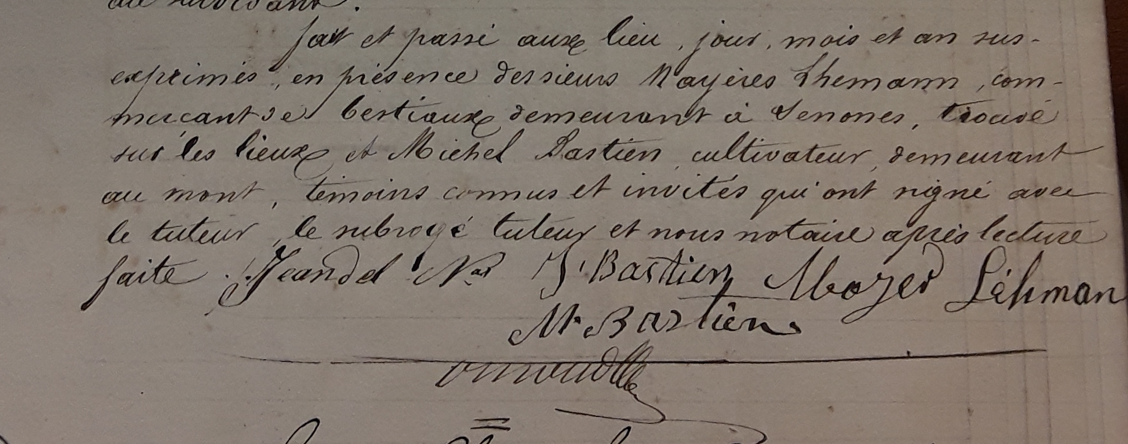 au subrogeant.
fait et passé aux lieu, jour, mois et an sus-
exprimés, en présence des sieurs Mayères Lhemann, com-
mercant de bestiaux demeurant à Senones, trouvé
sur les lieux et Michel Bastien, cultivateur, demeurant
au mont, témoins connus et invités qui ont signé avec
le tuteur, le subrogé tuteur et nous notaire après lecture
faite. Jeandel Nas J. Bastien Moyed Léhman
M. Bastien